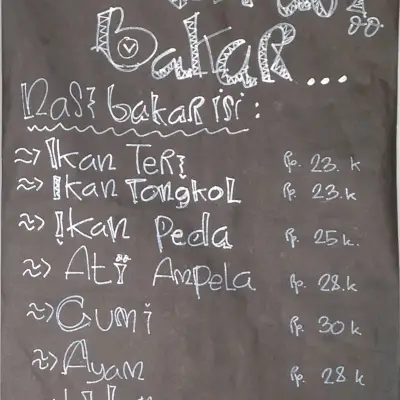 Bakar...
Nasi bakar isi :
Ikan Teri Rp. 23. k
Ikan Tongkol Rp. 23. k
Ikan Peda Rp. 25 k.
Ati Ampela Rp. 28. k
Cumi Rp. 30 k
Ayam Rp. 28 k